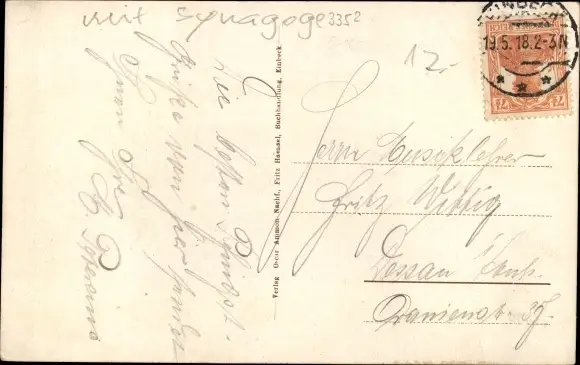 mit Synagoge 3352
12.-
EINBECK
19.5.18.2-3N
7½ 7½
Die besten Pfingst-
grüße von hier sendet
Ihnen Ihre
Verlag Oscar Ammon Nachf., Fritz Haensel, Buchhandlung, Einbeck
Herrn Musiklehrer
Fritz Wittig
Dessau Anh.
Oranienstr.